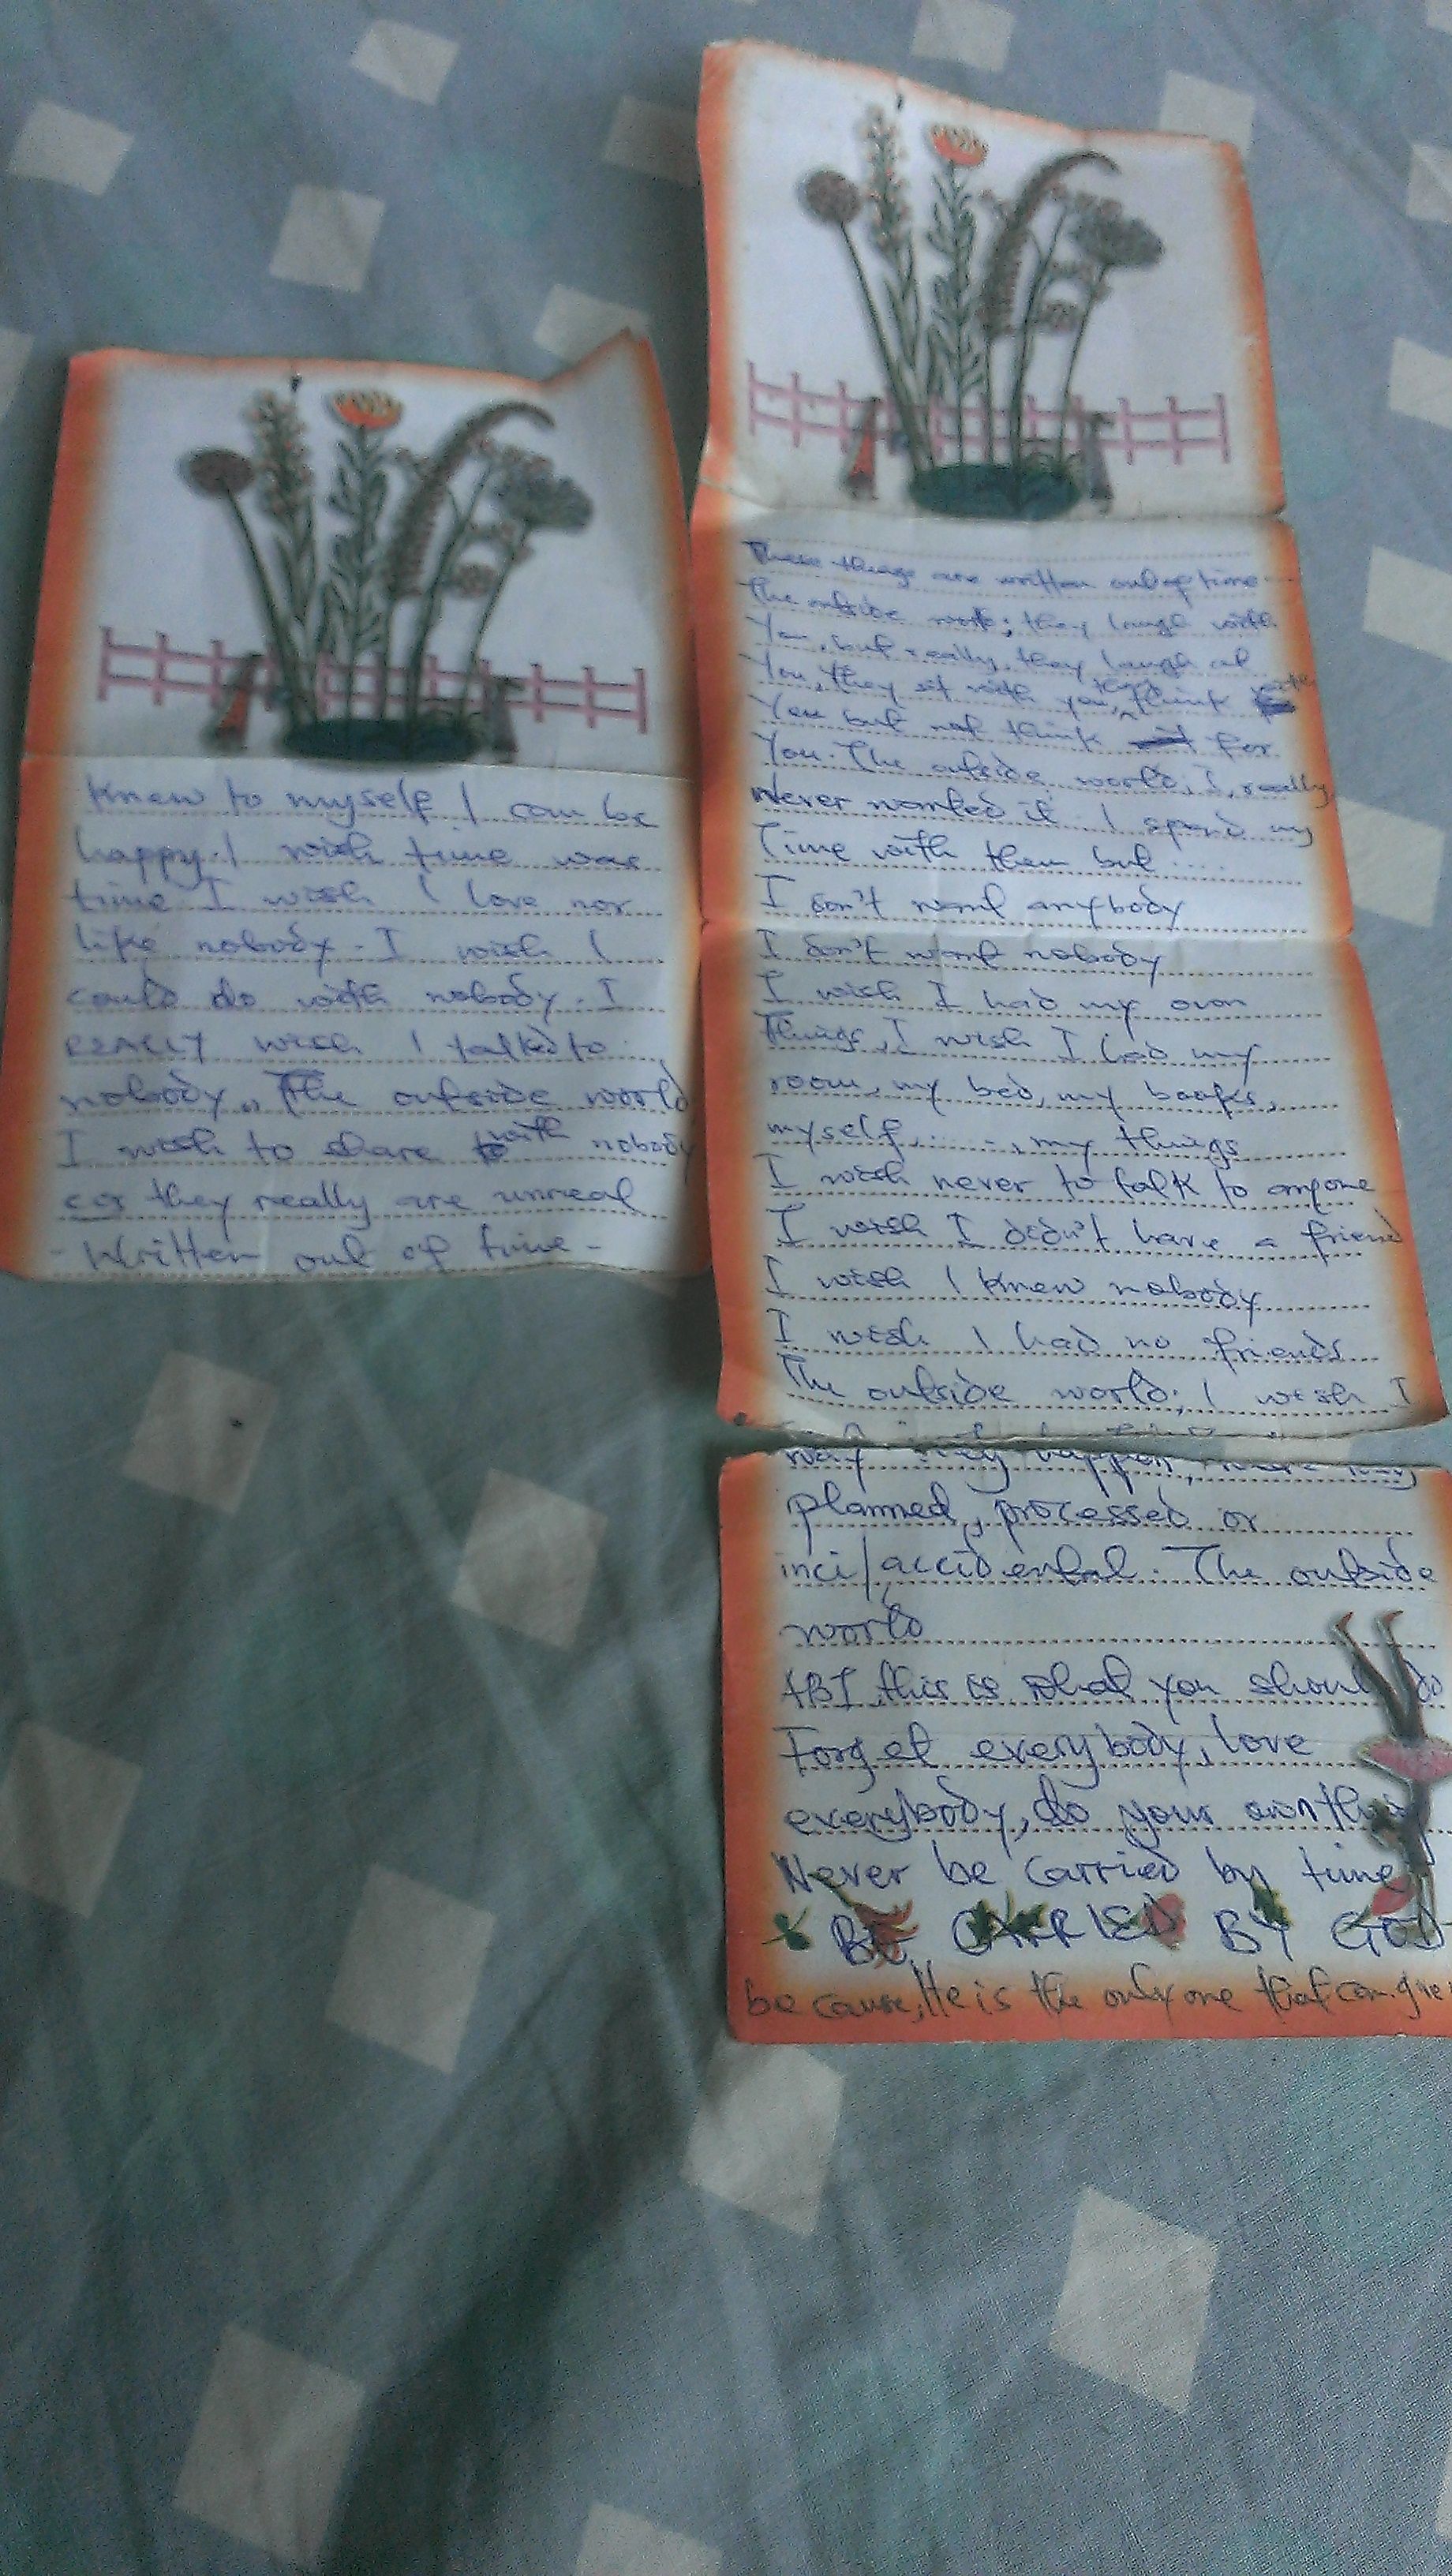 These things are written out of time
The outside world; they laugh with
You, but really, they laugh at
You, they sit with you, they think with
You but not think for
You. The outside world; I, really
Never wanted it. I spend my
Time with them but ....
I don't want anybody
I don't want nobody
I wish I had my own
Things, I wish I had my
room, my bed, my books,
myself, ...., my things
I wish never to talk to anyone
I wish I didn't have a friend
I wish I knew nobody
I wish I had no friends
The outside world; I wish I
Knew to myself I can be
happy. I wish time was
time I wish I love nor
like nobody. I wish I
could do with nobody. I
REALLY wish I talked to
nobody.. The outside world
I wish to share with nobody
cos they really are unreal
- Written out of time -
way they happen,
planned, processed or
inci/accidental. The outside
world
ABI this is what you should do
Forget everybody, love
everybody, do your own thing
Never be carried by time
BE CARRIED BY GOD
because, He is the only one that can give